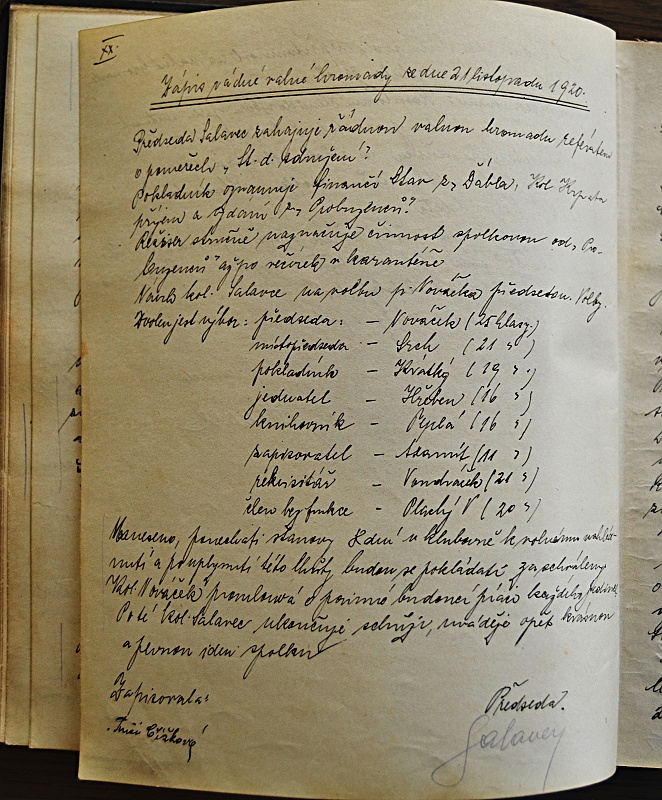 XX.
Zápis řádné valné hromady ze dne 21 listopadu 1920.
Předseda Salavec zahajuje řádnou valnou hromadu referátem
o poměrech „St. d.
Pokladník oznamuje finanční stav z „Ďábla", Kol.
příjem a vydání z „Probuzenců".
Režiser stručně naznačuje činnost spolkovou od „Pro-
buzenců" až po večírek v karanténě
Návrh kol. Salavce na volbu p. Nováčka předsedou. Volby.
Zvolen jest výbor: předseda: – Nováček (25 hlasy.)
místopředseda – Srch (21 „)
pokladník – Krátký (19 „)
jednatel – Hřeben (16 „)
knihovník – Teplá (16 „)
zapisovatel – Adamít (11 „)
rekvisitář – Vondráček (21 „)
člen bez funkce – Plachý V (20 „)
Usneseno, ponechati stanovy 8 dní v klubovně k volnému nahléd-
nutí a po uplynutí této lhůty budou se pokládati za schváleny
Kol. Nováček promlouvá o povinné budoucí práci každého jedince
Poté kol. Salavec ukončuje schůzi, uváděje opět krásnou
a pevnou ideu spolku
Zapisovala:
Čížková
Předseda.
Salavec